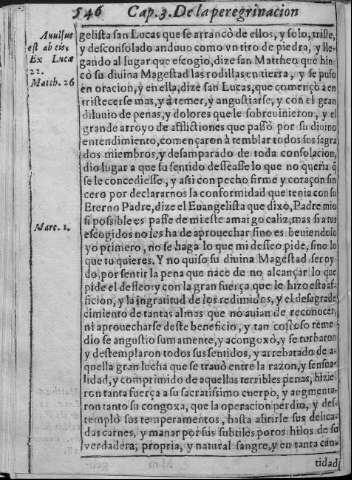 546 Cap. 3. De la peregrinacion
Auulsus
est ab eis,
Ex Lucæ
22.
Matth. 26
Marc. 1.
gelista san Lucas que se arrancò de ellos, y solo, triste,
y desconsolado anduuo como vn tiro de piedra, y lle-
gando al lugar que escogio, dize san Mattheo que hin-
cò su diuina Magestad las rodillas en tierra, y se puso
en oracion, y en ella, dize san Lucas, que començò a en-
tristecerse mas, y à temer, y angustiarse, y con el gran
diluuio de penas, y dolores que le sobreuinieron, y el
grande arroyo de afflictiones que passò por su diuino
entendimiento, començaron à temblar todos sus sagra
dos miembros, y desamparado de toda consolacion,
dio lugar a que su sentido desseasse lo que no queria q̃
se le concediesse, y assi con pecho firme y coraçon sin
cero por declararnos la conformidad que tenia con su
Eterno Padre, dize el Euangelista que dixo, Padre mio
si possible es passe de mi este amargo caliz, mas si a tus
escogidos no les ha de aprouechar sino es beuiendolo
yo primero, no se haga lo que mi desseo pide, sino lo
que tu quieres. Y no quiso su diuina Magestad ser oy-
do, por sentir la pena que nace de no alcançar lo que
pide el desseo y con la gran fuerça que le hizo esta af-
ficion, y la ingratitud de los redimidos, y el desagrade
cimiento de tantas almas que no auian de reconocer,
ni aprouecharse deste beneficio, y tan costoso reme
dio se angustio sumamente, y acongoxò, y se turbaron
y destemplaron todos sus sentidos, y arrebatado de a-
quella gran lucha que se trauò entre la razon, y sensua-
lidad, y comprimido de aquellas terribles penas, hizie-
ron tanta fuerça a su sacratissimo cuerpo, y augmenta-
ron tanto su congoxa, que la operacion perdio, y des-
templò sus temperamentos, hasta abrirle sus delica-
das carnes, y manar por sus subtiles poros hilos de su
verdadera, propria, y natural sangre, y en tanta can-
tidad